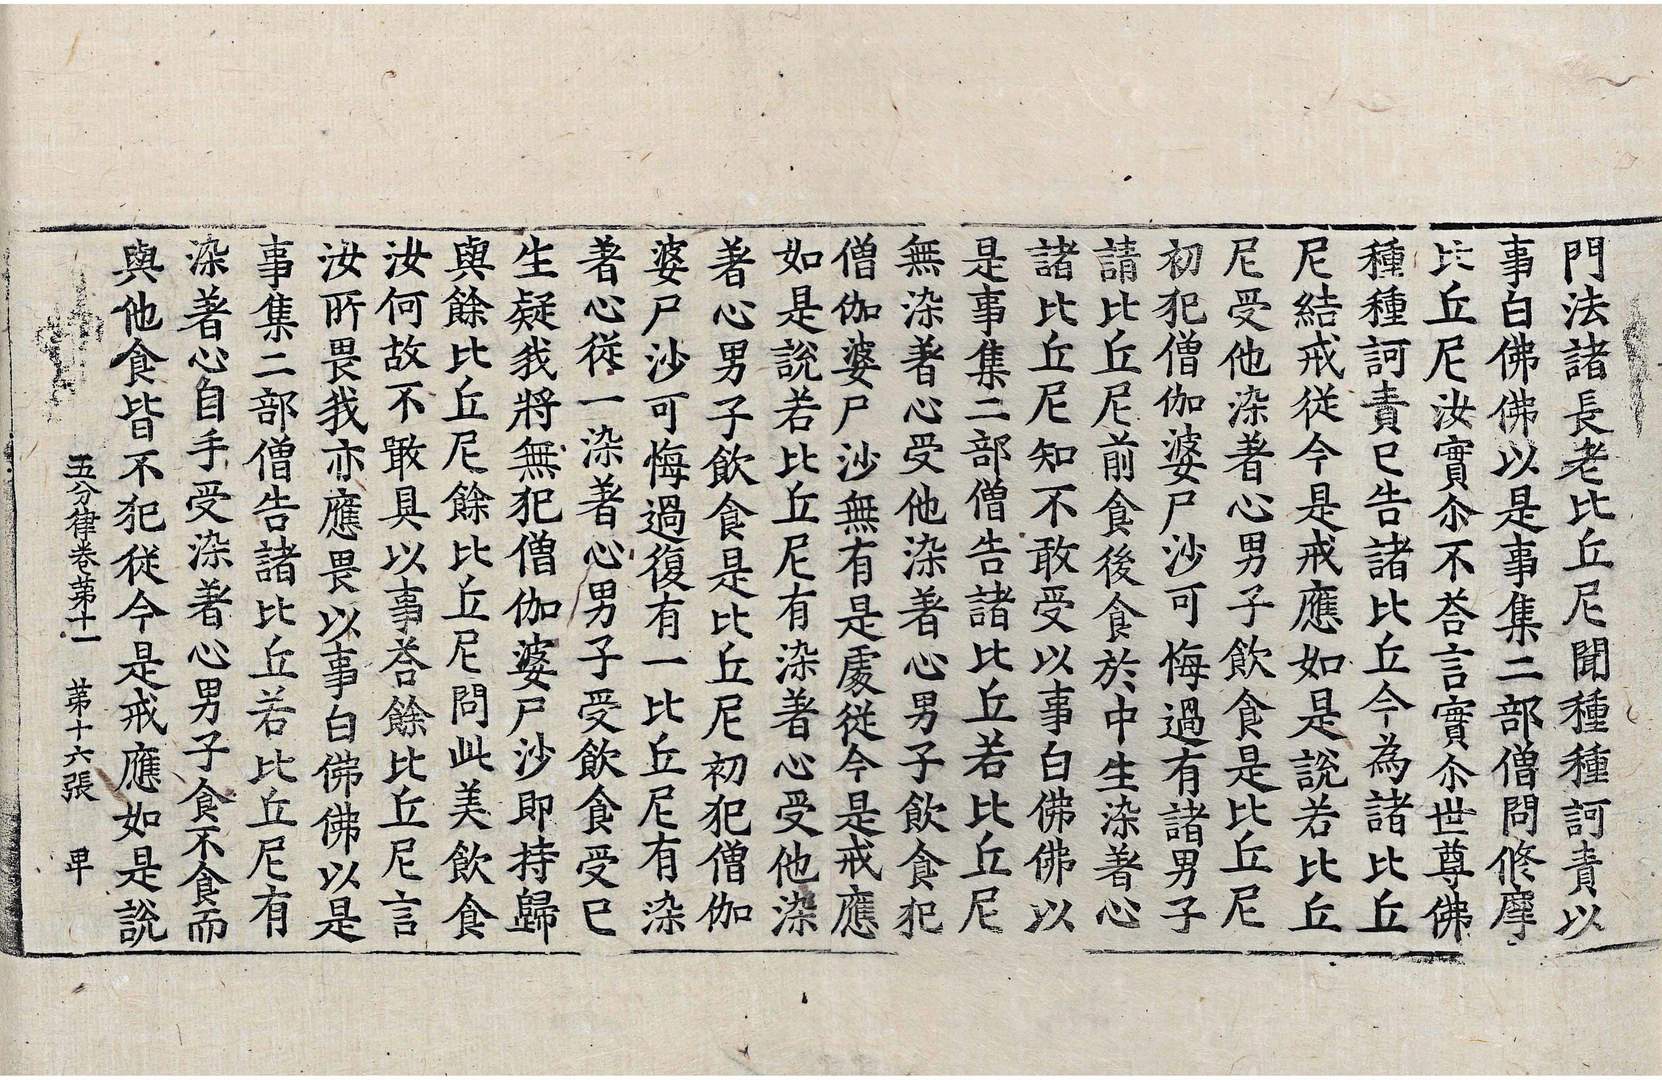 門法諸長老比丘尼聞種種訶責以
事白佛佛以是事集二部僧問修摩
比丘尼汝實尒不荅言實尒世尊佛
種種訶責已告諸比丘今為諸比丘
尼結戒從今是戒應如是說若比丘
尼受他染著心男子飲食是比丘尼
初犯僧伽婆尸沙可悔過有諸男子
請比丘尼前食後食於中生染著心
諸比丘尼知不敢受以事白佛佛以
是事集二部僧告諸比丘若比丘尼
無染著心受他染著心男子飲食犯
僧伽婆尸沙無有是處從今是戒應
如是說若比丘尼有染著心受他染
著心男子飲食是比丘尼初犯僧伽
婆尸沙可悔過復有一比丘尼有染
著心從一染著心男子受飲食受已
生疑我將無犯僧伽婆尸沙即持歸
與餘比丘尼餘比丘尼問此美飲食
汝何故不噉具以事荅餘比丘尼言
汝所畏我亦應畏以事白佛佛以是
事集二部僧告諸比丘若比丘尼有
染著心自手受染著心男子食不食而
與他食皆不犯從今是戒應如是說
五分律卷第十一 第十六張 卑